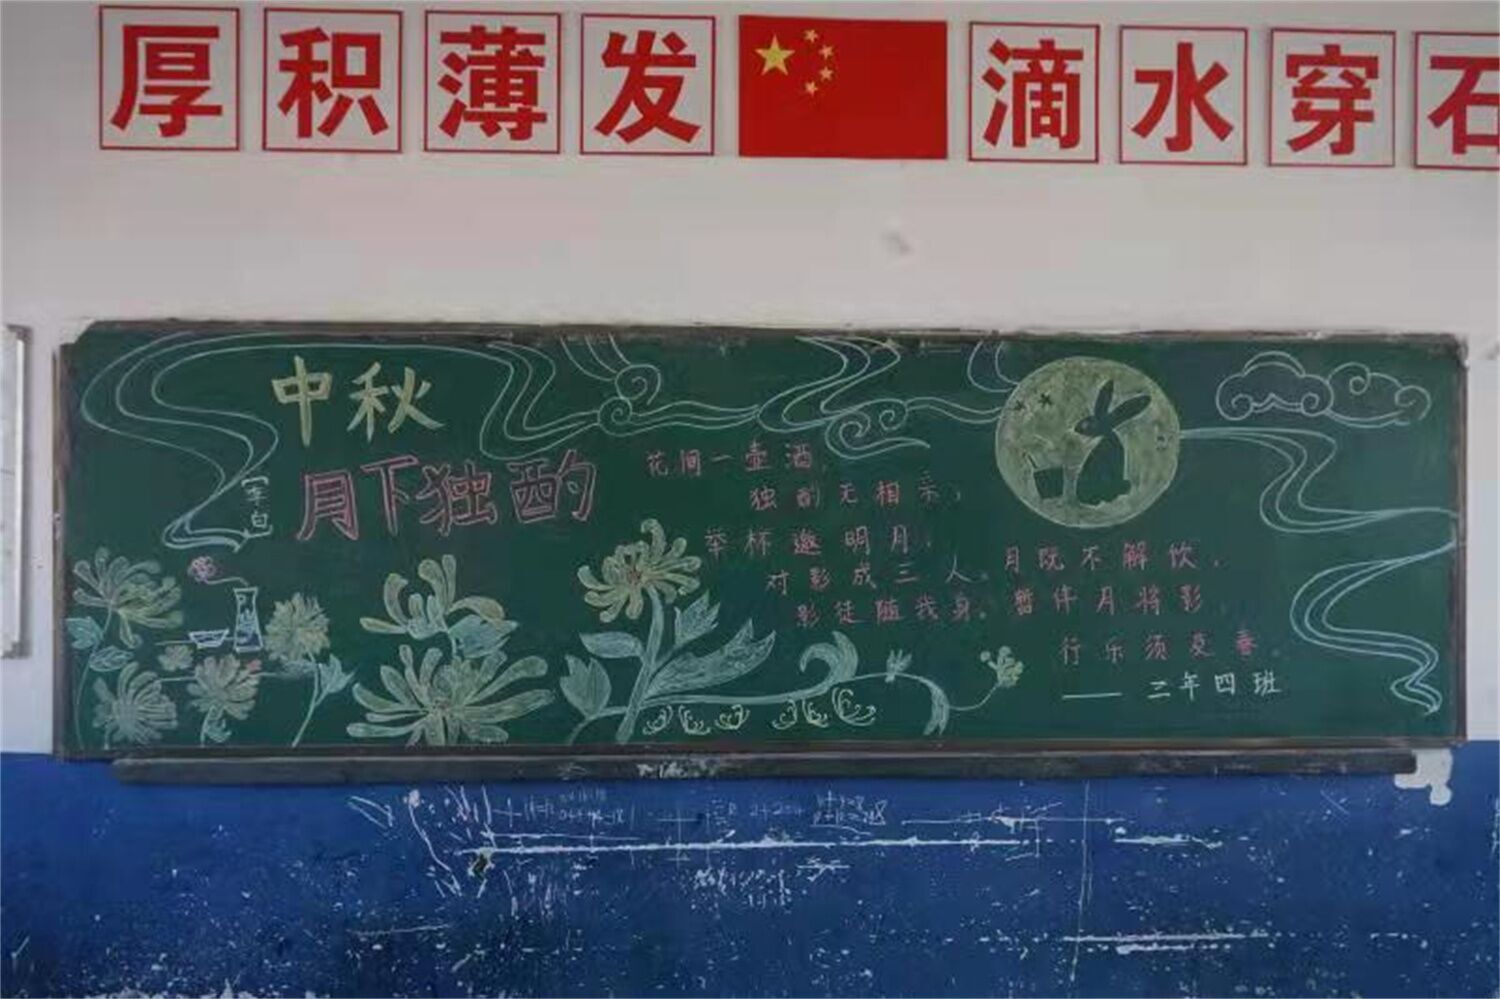 厚积薄发 滴水穿石
中秋
月下独酌
【李白】
花间一壶酒，
独酌无相亲；
举杯邀明月，
对影成三人。月既不解饮，
影徒随我身。暂伴月将影，
行乐须及春。
—— 三年四班